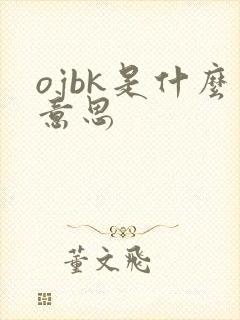 ojbk是什麼
意思
董文飛